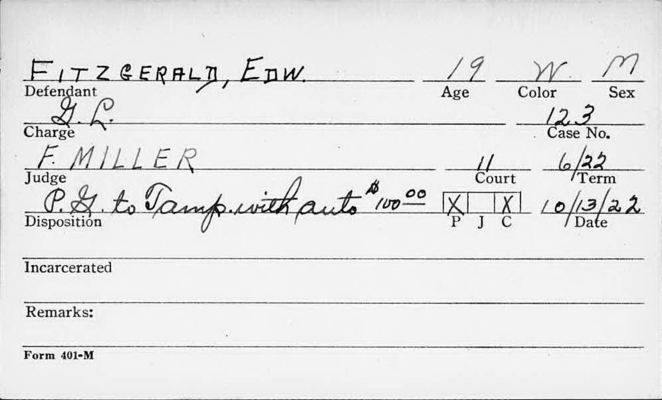 FITZGERALD, EDW. 19 W. M
Defendant Age Color Sex
G. L. 123
Charge Case No.
F. MILLER 11 6/22
Judge Court Term
P. G. to Tamp. with auto $100.00 X X 10/13/22
Disposition P J C Date
Incarcerated
Remarks:
Form 401-M